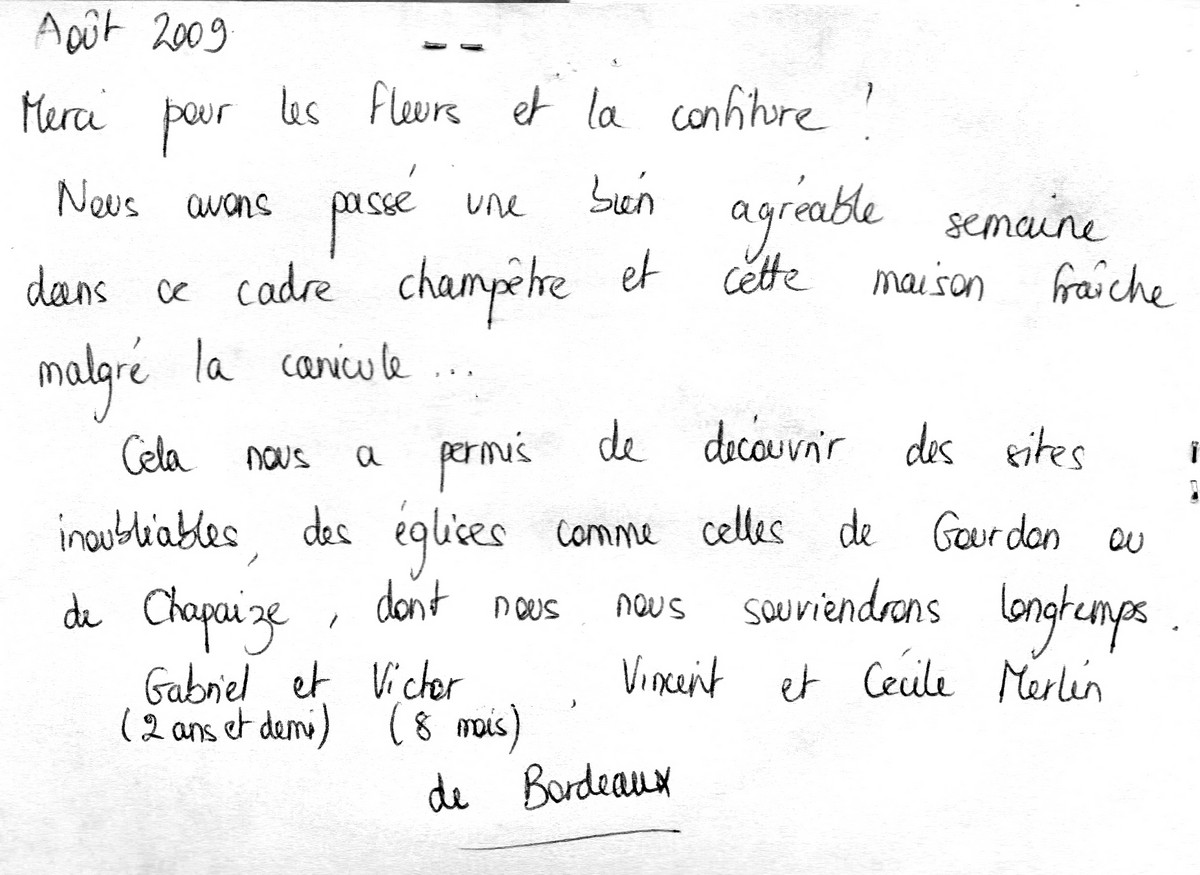 Août 2009
Merci pour les fleurs et la confiture !
Nous avons passé une bien agréable semaine
dans ce cadre champêtre et cette maison fraîche
malgré la canicule ...
Cela nous a permis de découvrir des sites
inoubliables, des églises comme celles de Gourdon ou
de Chapaize, dont nous nous souviendrons longtemps.
Gabriel et Victor, Vincent et Cécile Merlin
(2 ans et demi) (8 mois)
de Bordeaux